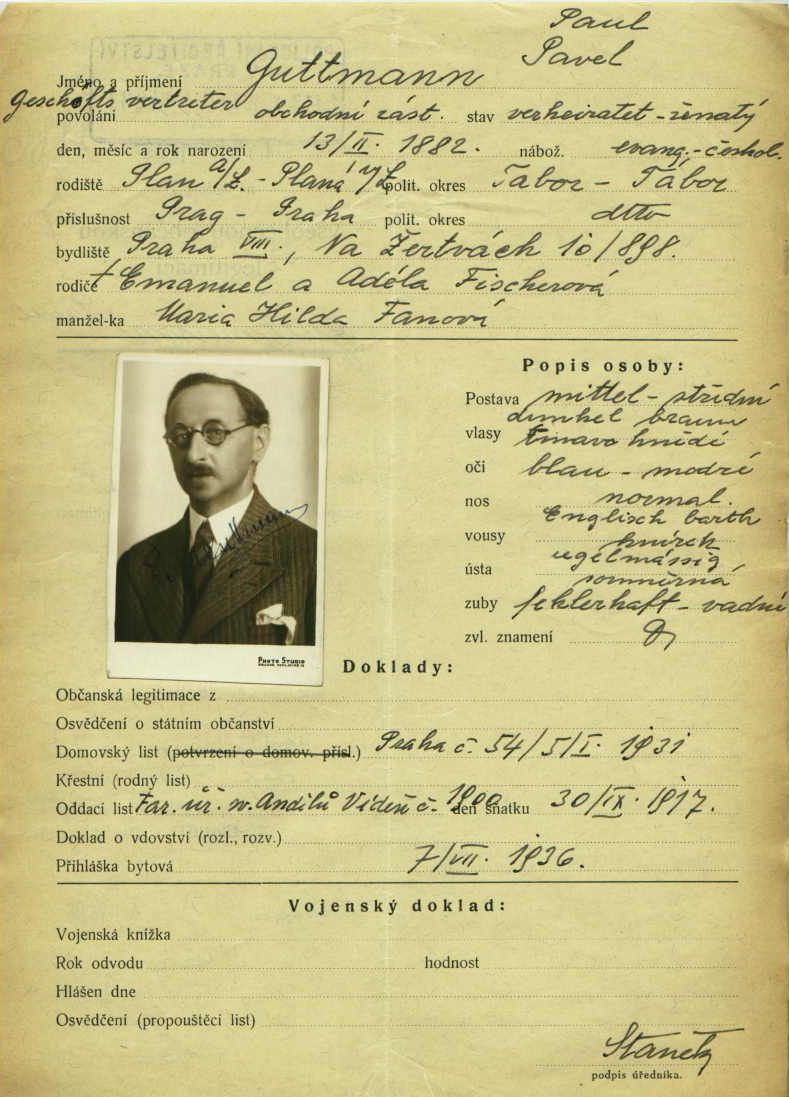 Paul
Pavel
Jméno a příjmení Guttmann
Geschäftsvertreter
povolání obchodní zást. stav verheiratet - ženatý
den, měsíc a rok narození 13/II. 1882. nábož. evang.-českol.
rodiště Plan a/L. - Planá n/L polit. okres Tabor - Tábor
příslušnost Prag - Praha polit. okres dtto
bydliště Praha VIII., Na Žertvách 10/898.
rodiče † Emanuel a Adéla Fischerová
manžel-ka Maria Hilda Fanová
Popis osoby:
Postava mittel - střední
dunkel braun
vlasy tmavo hnědé
oči blau - modré
nos normal.
Englisch barth
vousy knírek
regelmässig
ústa souměrná
zuby fehlerhaft - vadné
zvl. znamení
Photo Studio
Doklady:
Občanská legitimace z
Osvědčení o státním občanství
Domovský list (potvrzení o domov. přísl.) Praha č. 54/5/I. 1931
Křestní (rodný list)
Oddací list Far. úř. u. Andělů Vídeň č. 1900 den sňatku 30/IX. 1917.
Doklad o vdovství (rozl., rozv.)
Přihláška bytová 7/VII. 1936.
Vojenský doklad:
Vojenská knížka
Rok odvodu hodnost
Hlášen dne
Osvědčení (propouštěcí list)
podpis úředníka.